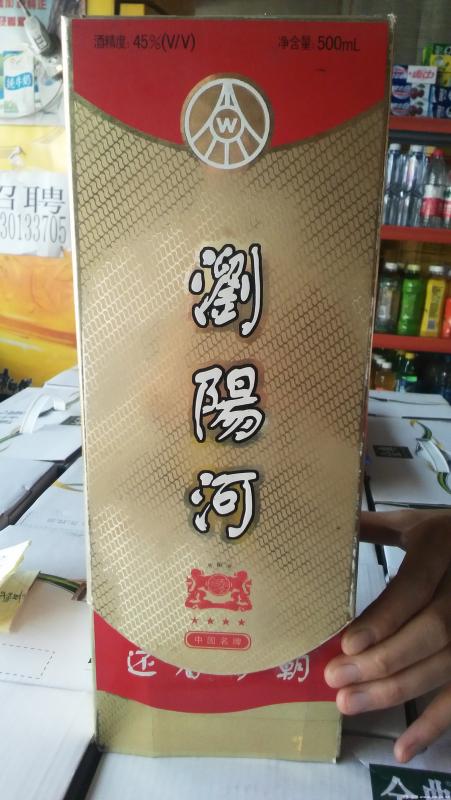 酒精度: 45%(V/V)
净含量: 500mL
W
瀏
陽
河
中国名牌
还看今朝
招聘
30133705
纯牛奶